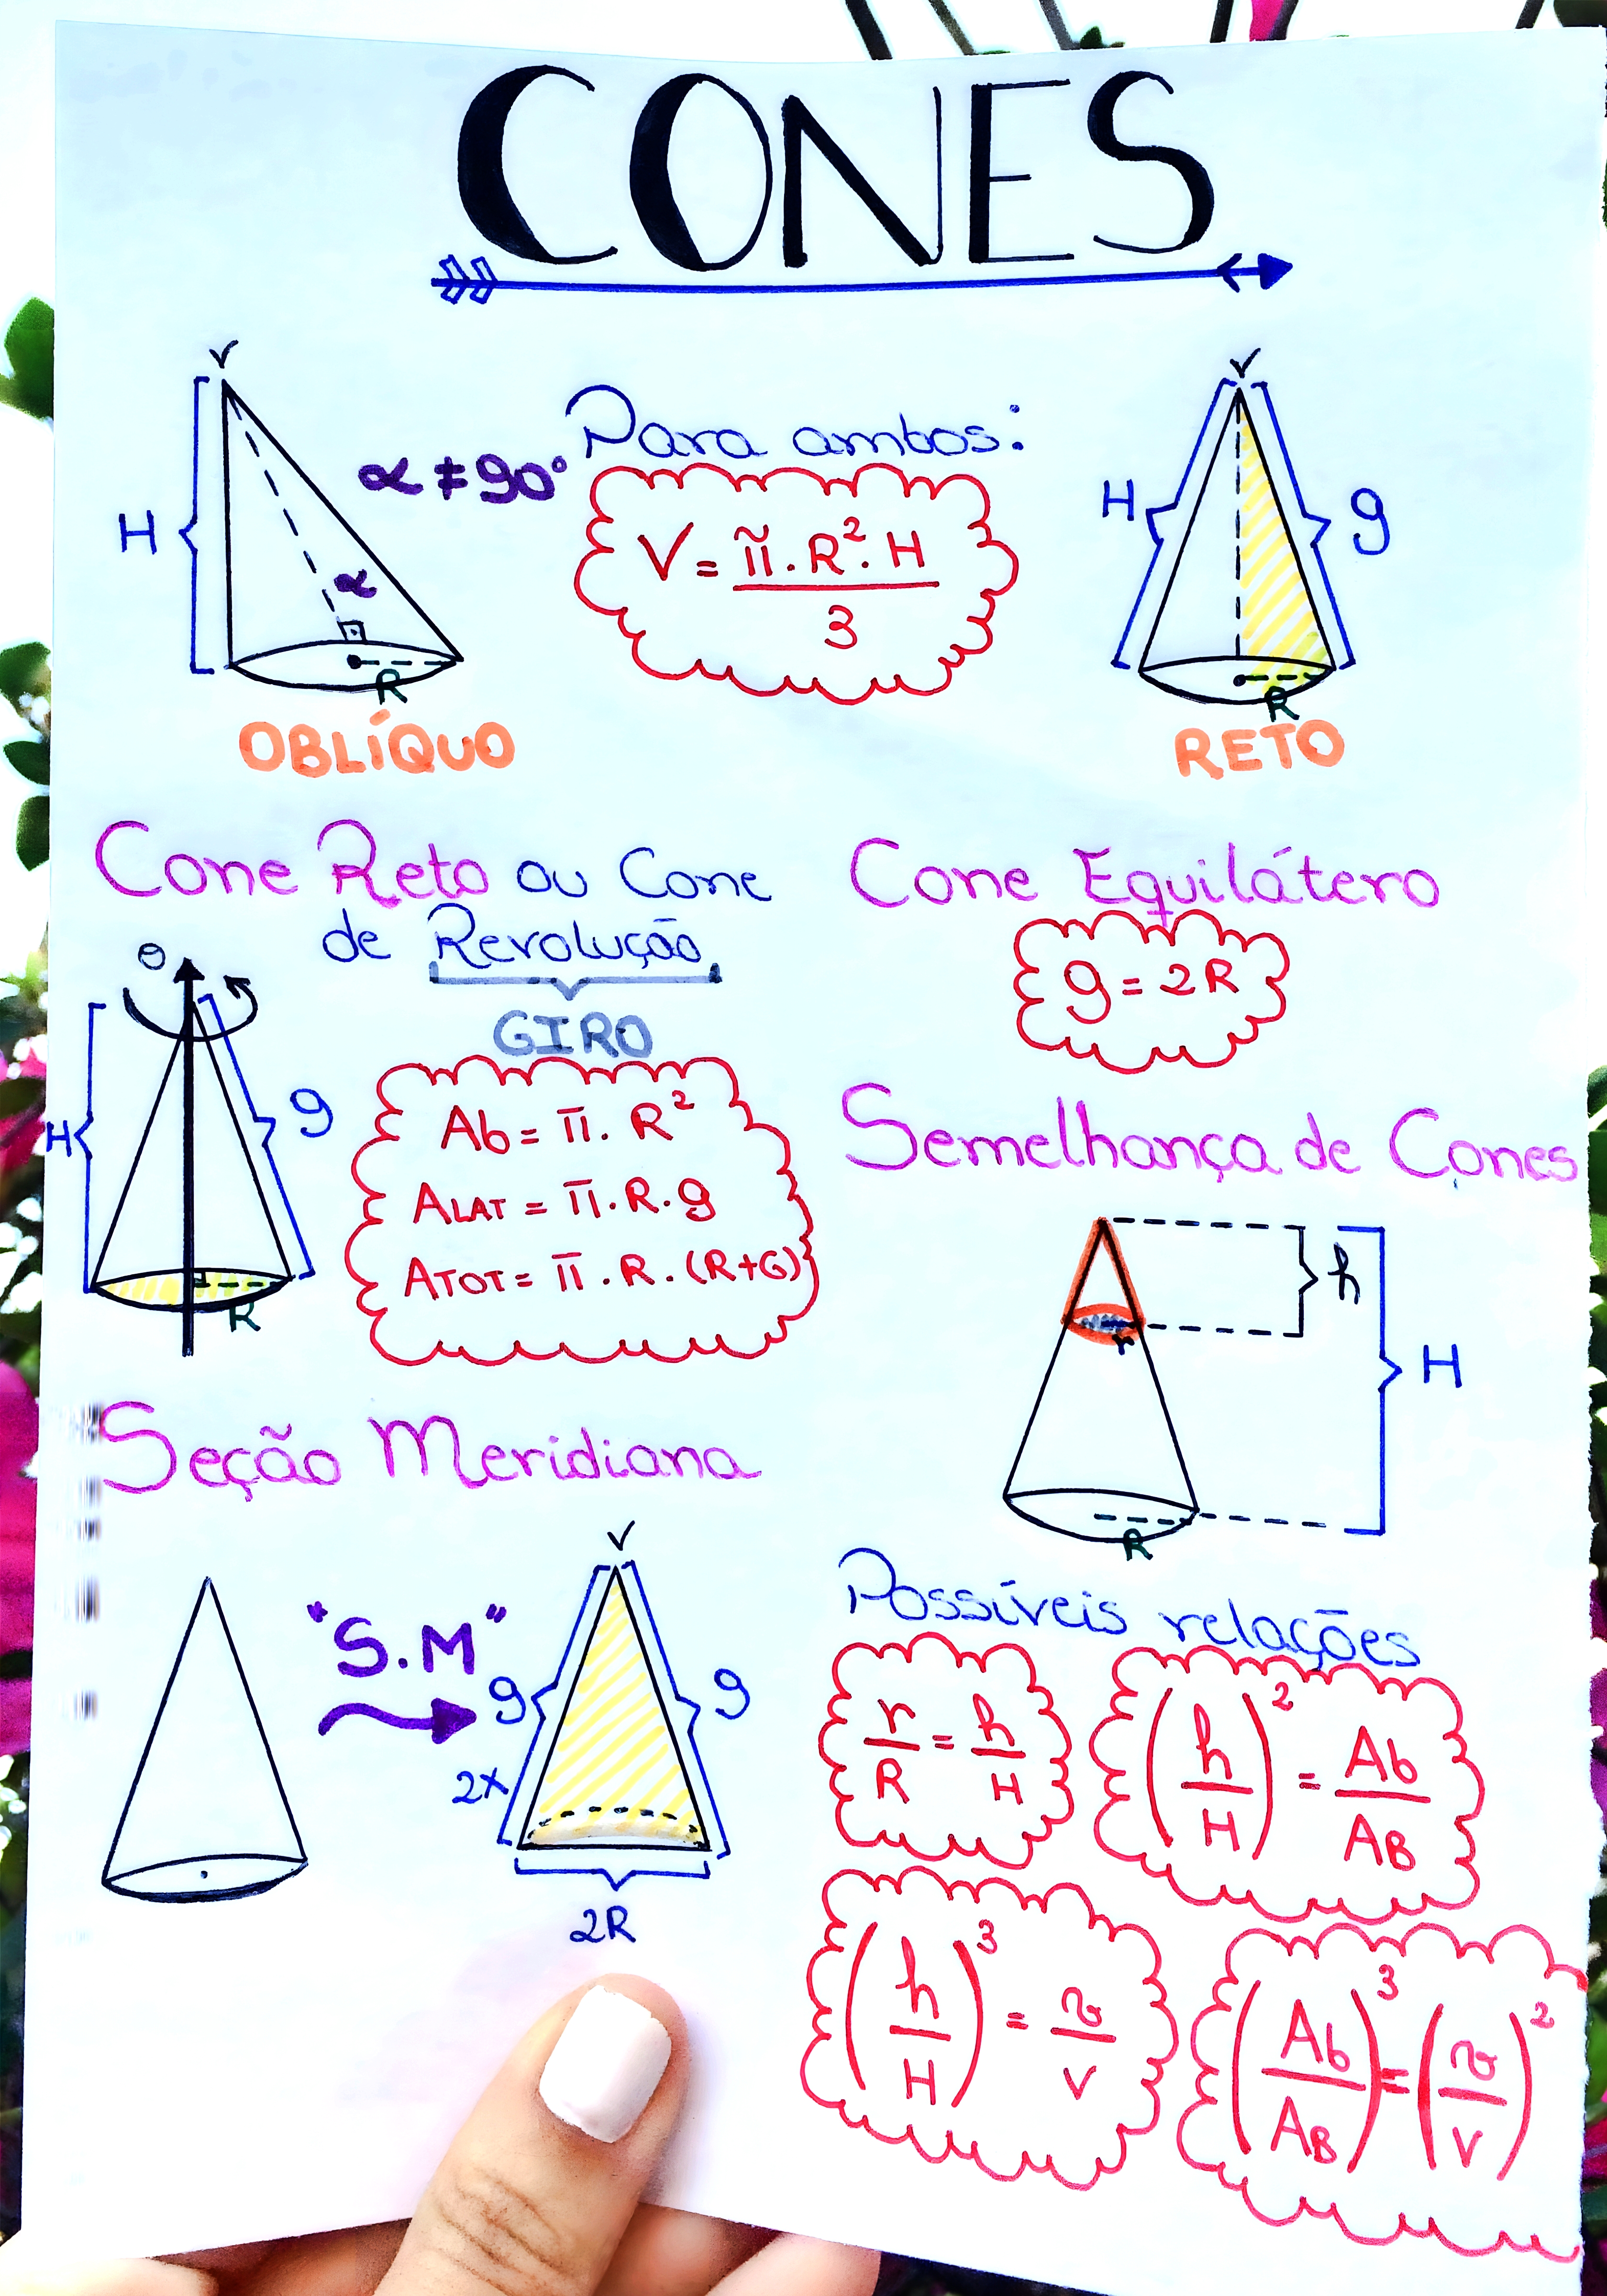 CONES
V
H
α ≠ 90°
α
R
OBLÍQUO
Para ambos:
V = π . R² . H
3
V
H
g
R
RETO
Cone Reto ou Cone
de Revolução
GIRO
θ
H
g
R
Ab = π . R²
ALAT = π . R . g
ATOT = π . R . (R+G)
Cone Equilátero
g = 2R
Semelhança de Cones
h
r
H
R
Seção Meridiana
"S.M"
V
g
g
2x
2R
Possíveis relações
r/R = h/H
(h/H)² = Ab/AB
(h/H)³ = v/V
(Ab/AB)³ = (v/V)²